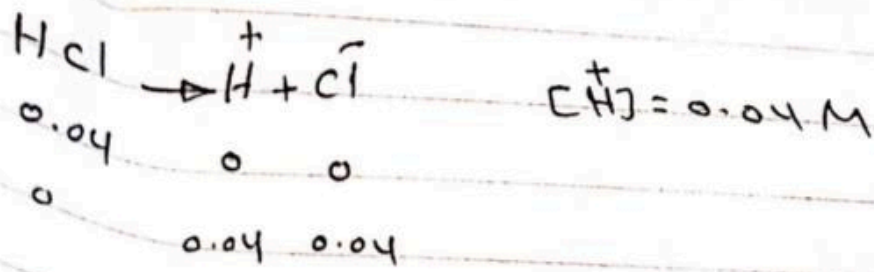 HCl → H⁺ + Cl⁻ [H⁺] = 0.04 M
0.04 0 0
0 0.04 0.04